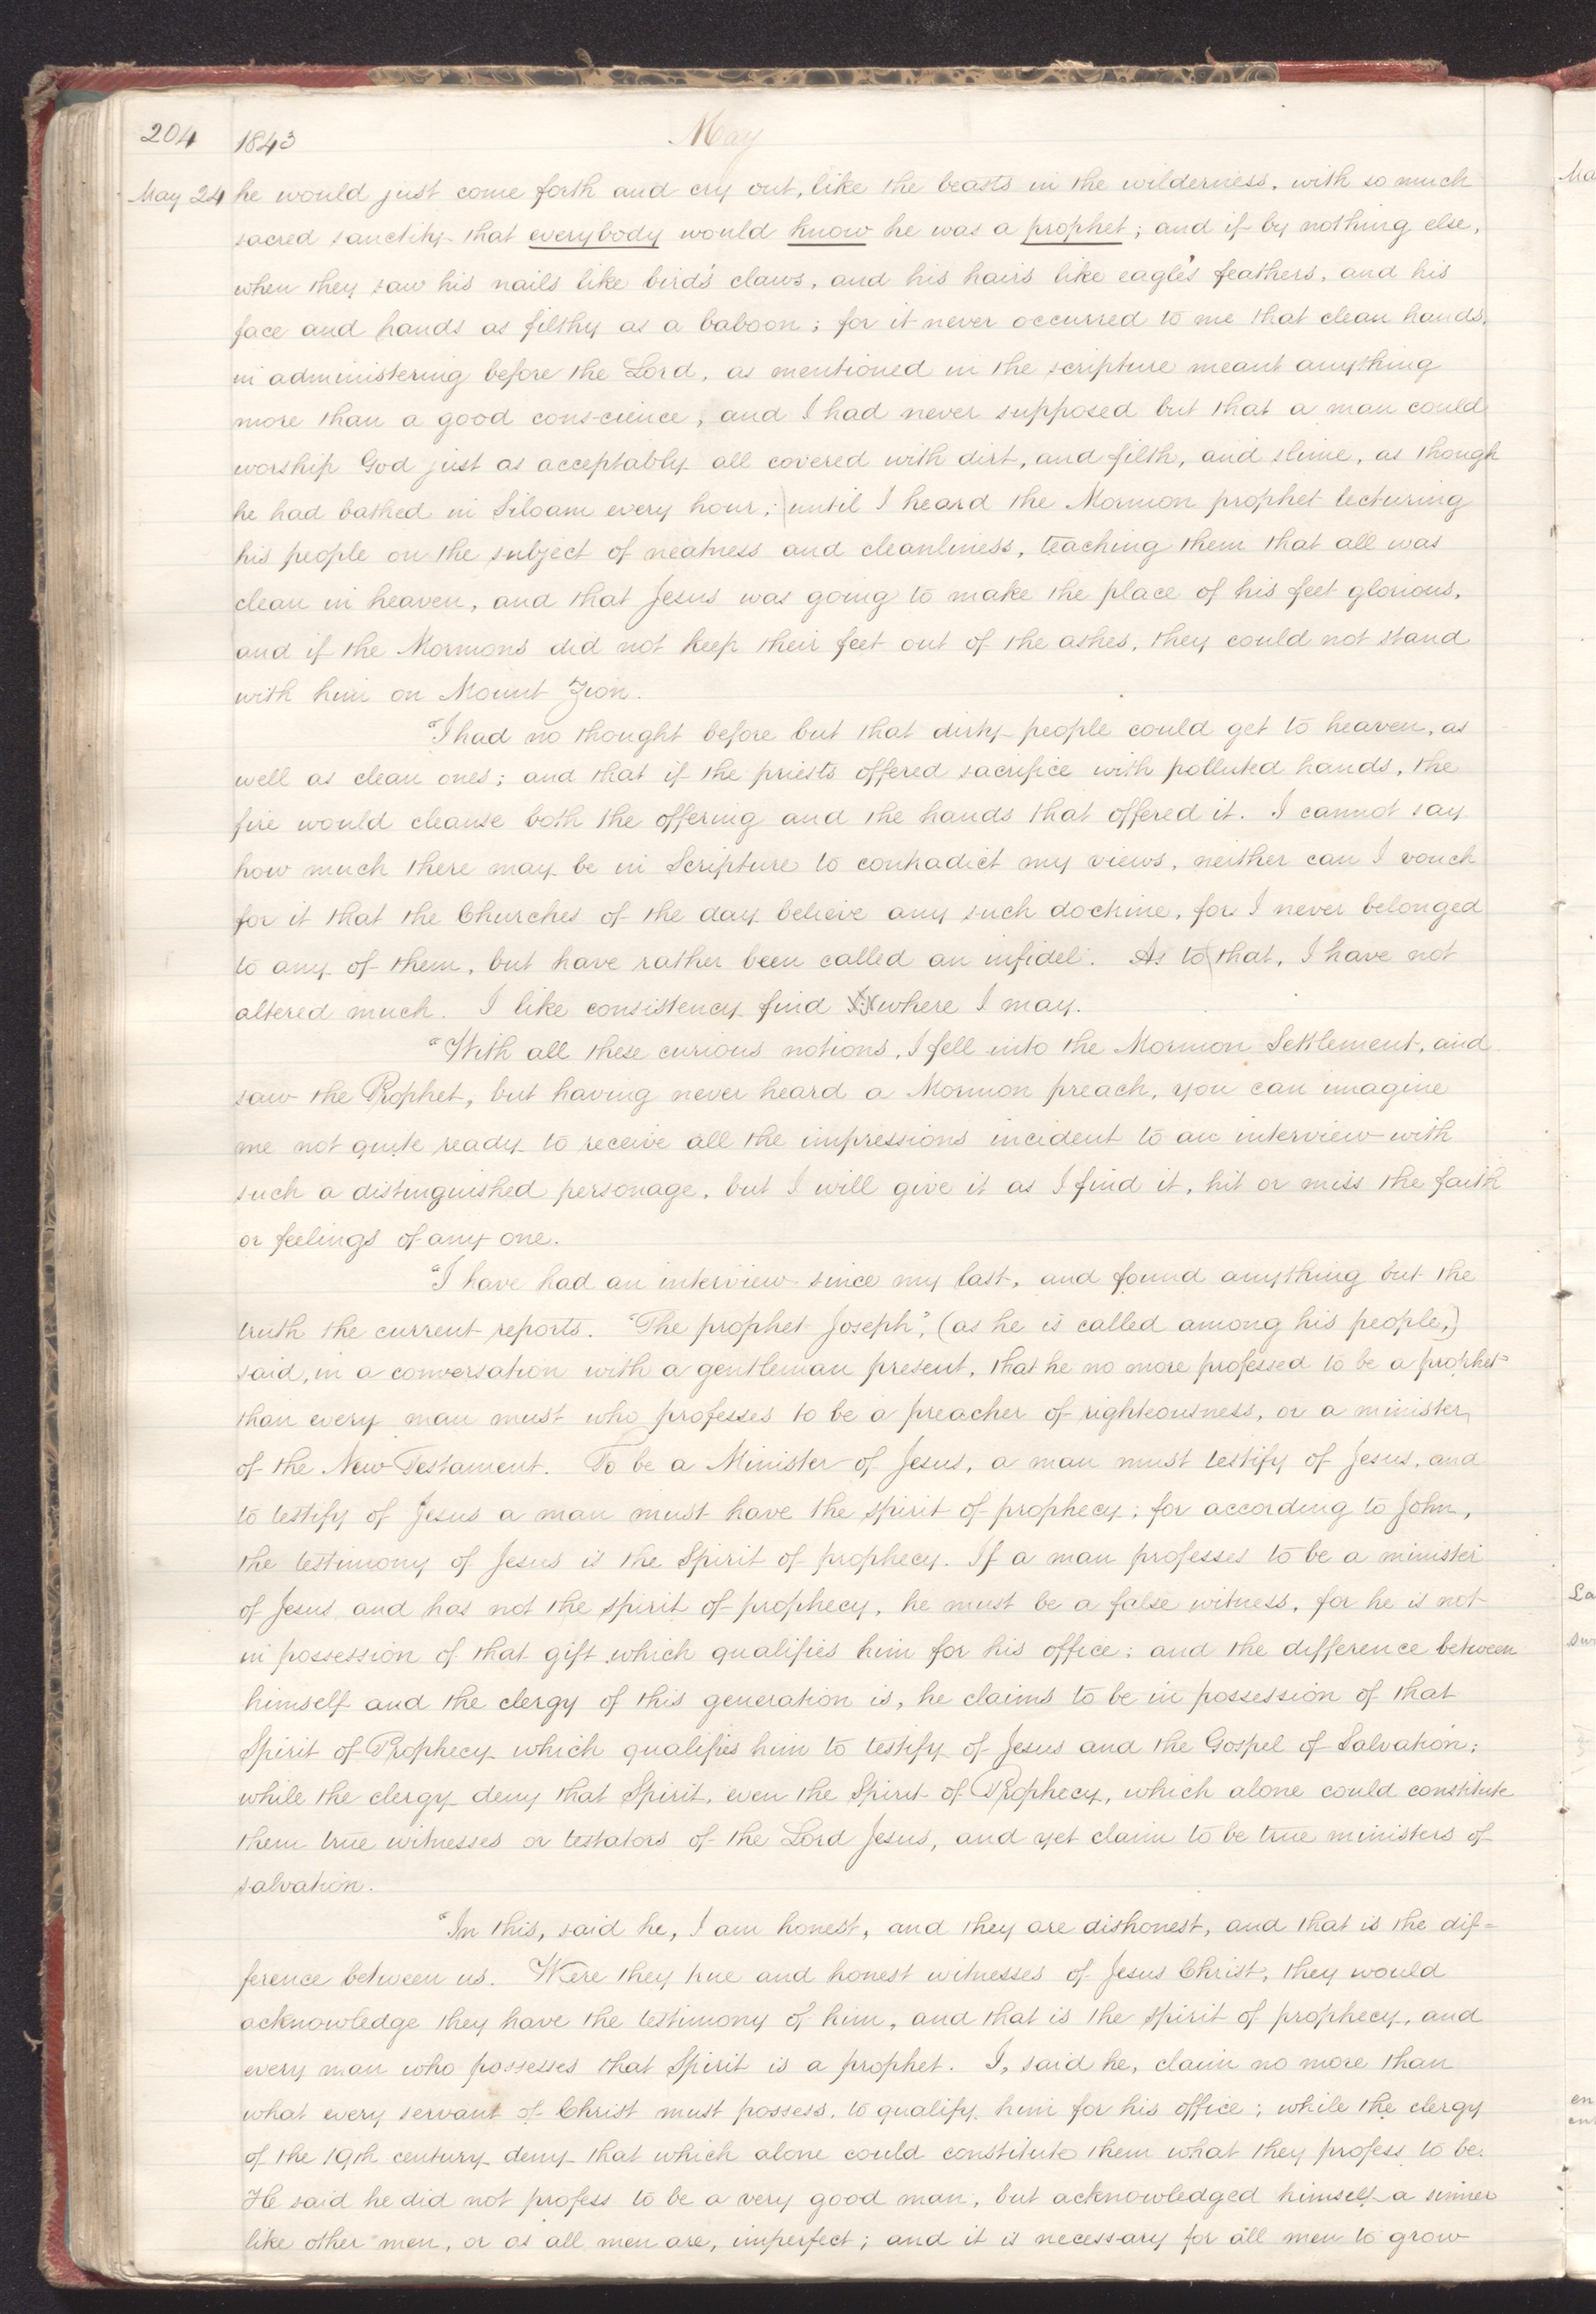 204 1843 May
May 24 he would just come forth and cry out, like the beasts in the wilderness, with so much
sacred sanctity that everybody would know he was a prophet; and if by nothing else,
when they saw his nails like bird's claws, and his hairs like eagle's feathers, and his
face and hands as filthy as a baboon; for it never occurred to me that clean hands,
in administering before the Lord, as mentioned in the scripture meant anything
more than a good conscience, and I had never supposed but that a man could
worship God just as acceptably all covered with dirt, and filth, and slime, as though
he had bathed in Siloam every hour; until I heard the Mormon prophet lecturing
his people on the subject of neatness and cleanliness, teaching them that all was
clean in heaven, and that Jesus was going to make the place of his feet glorious,
and if the Mormons did not keep their feet out of the ashes, they could not stand
with him on Mount Zion.
"I had no thought before but that dirty people could get to heaven, as
well as clean ones; and that if the priests offered sacrifice with polluted hands, the
fire would cleanse both the offering and the hands that offered it. I cannot say
how much there may be in Scripture to contradict my views, neither can I vouch
for it that the Churches of the day believe any such doctrine, for I never belonged
to any of them, but have rather been called an infidel. As to that, I have not
altered much. I like consistency find where I may.
"With all these curious notions, I fell into the Mormon Settlement, and
saw the Prophet, but having never heard a Mormon preach, you can imagine
me not quite ready to receive all the impressions incident to an interview with
such a distinguished personage, but I will give it as I find it, hit or miss the faith
or feelings of any one.
"I have had an interview since my last, and found anything but the
truth the current reports. "The prophet Joseph", (as he is called among his people,)
said, in a conversation with a gentleman present, that he no more professed to be a prophet
than every man must who professes to be a preacher of righteousness, or a minister
of the New Testament. To be a Minister of Jesus, a man must testify of Jesus, and
to testify of Jesus a man must have the spirit of prophecy; for according to John,
the testimony of Jesus is the Spirit of prophecy. If a man professes to be a minister
of Jesus and has not the spirit of prophecy, he must be a false witness, for he is not
in possession of that gift which qualifies him for his office; and the difference between
himself and the clergy of this generation is, he claims to be in possession of that
Spirit of Prophecy which qualifies him to testify of Jesus and the Gospel of Salvation;
while the clergy deny that Spirit, even the Spirit of Prophecy, which alone could constitute
them true witnesses or testators of the Lord Jesus, and yet claim to be true ministers of
salvation.
"In this, said he, I am honest, and they are dishonest, and that is the dif=
ference between us. Were they true and honest witnesses of Jesus Christ, they would
acknowledge they have the testimony of him, and that is the spirit of prophecy, and
every man who possesses that Spirit is a prophet. I, said he, claim no more than
what every servant of Christ must possess, to qualify him for his office; while the clergy
of the 19th century deny that which alone could constitute them what they profess to be.
He said he did not profess to be a very good man, but acknowledged himself a sinner
like other men, or as all men are, imperfect; and it is necessary for all men to grow